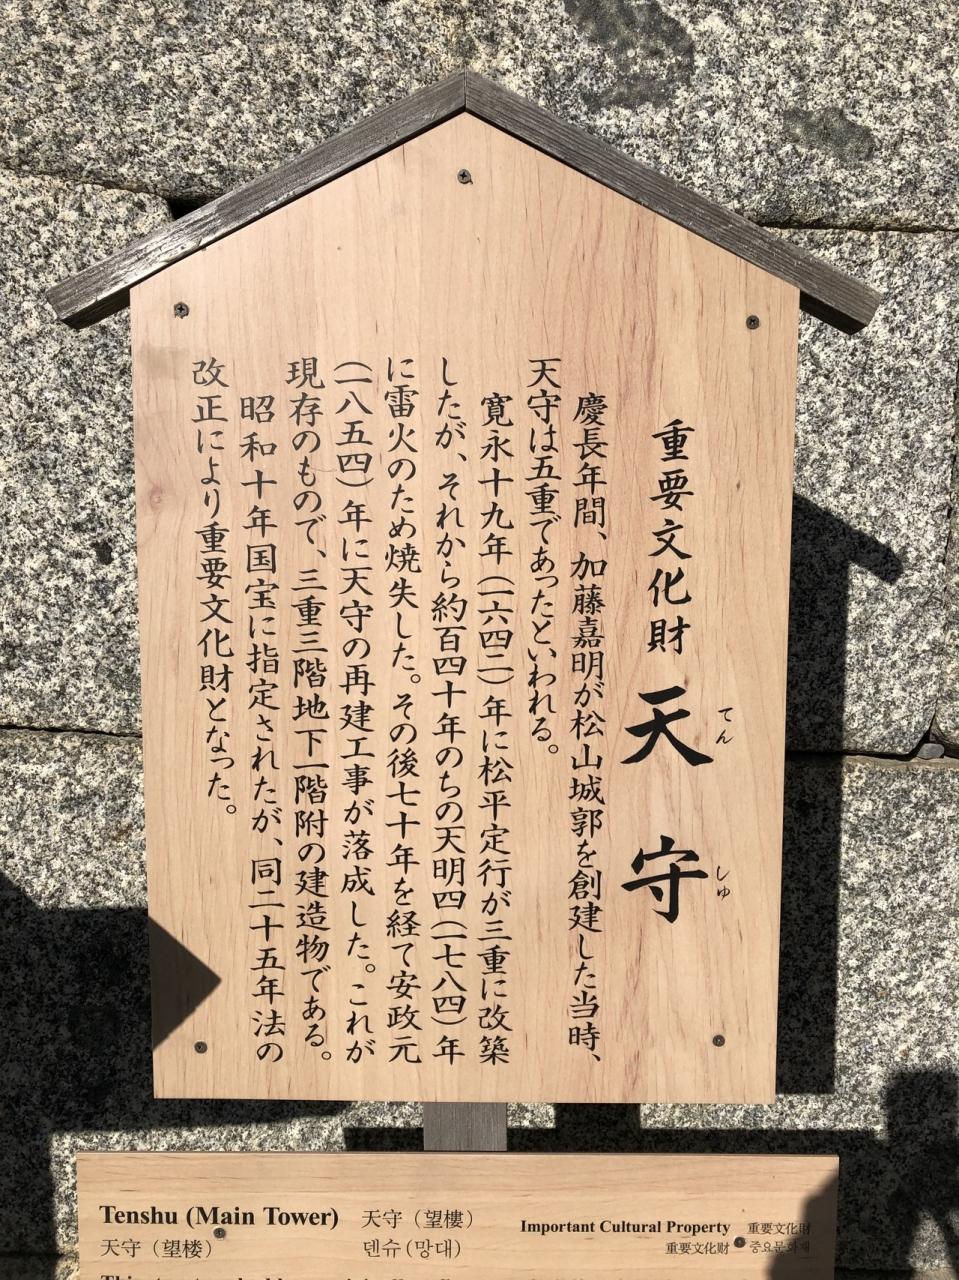 重要文化財 天守
てんしゅ
慶長年間、加藤嘉明が松山城郭を創建した当時、
天守は五重であったといわれる。
寛永十九年(一六四二)年に松平定行が三重に改築
したが、それから約百四十年のちの天明四(一七八四)年
に雷火のため焼失した。その後七十年を経て安政元
(一八五四)年に天守の再建工事が落成した。これが
現存のもので、三重三階地下一階附の建造物である。
昭和十年国宝に指定されたが、同二十五年法の
改正により重要文化財となった。
Tenshu (Main Tower) 天守（望樓） Important Cultural Property 重要文化財
天守（望楼） 덴슈(망대) 重要文化財 중요문화재